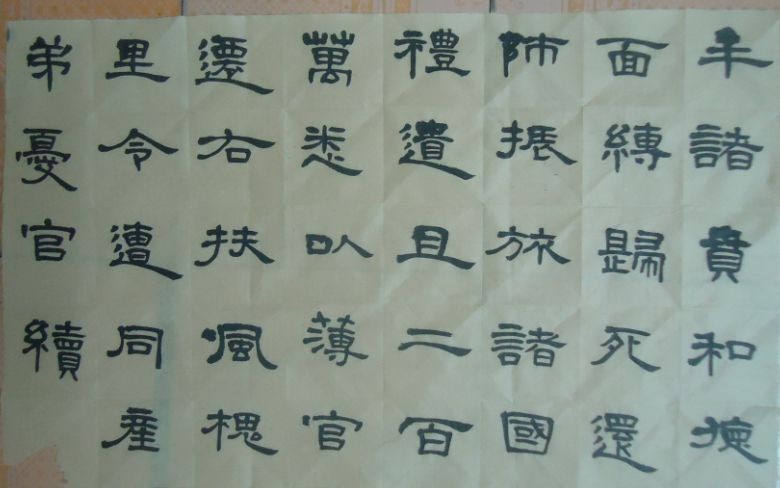 牟諸賁和德
面縛歸死還
師振旅諸國
禮遺且二百
萬悉以薄官
遷右扶風槐
里令遭同産
弟憂官續